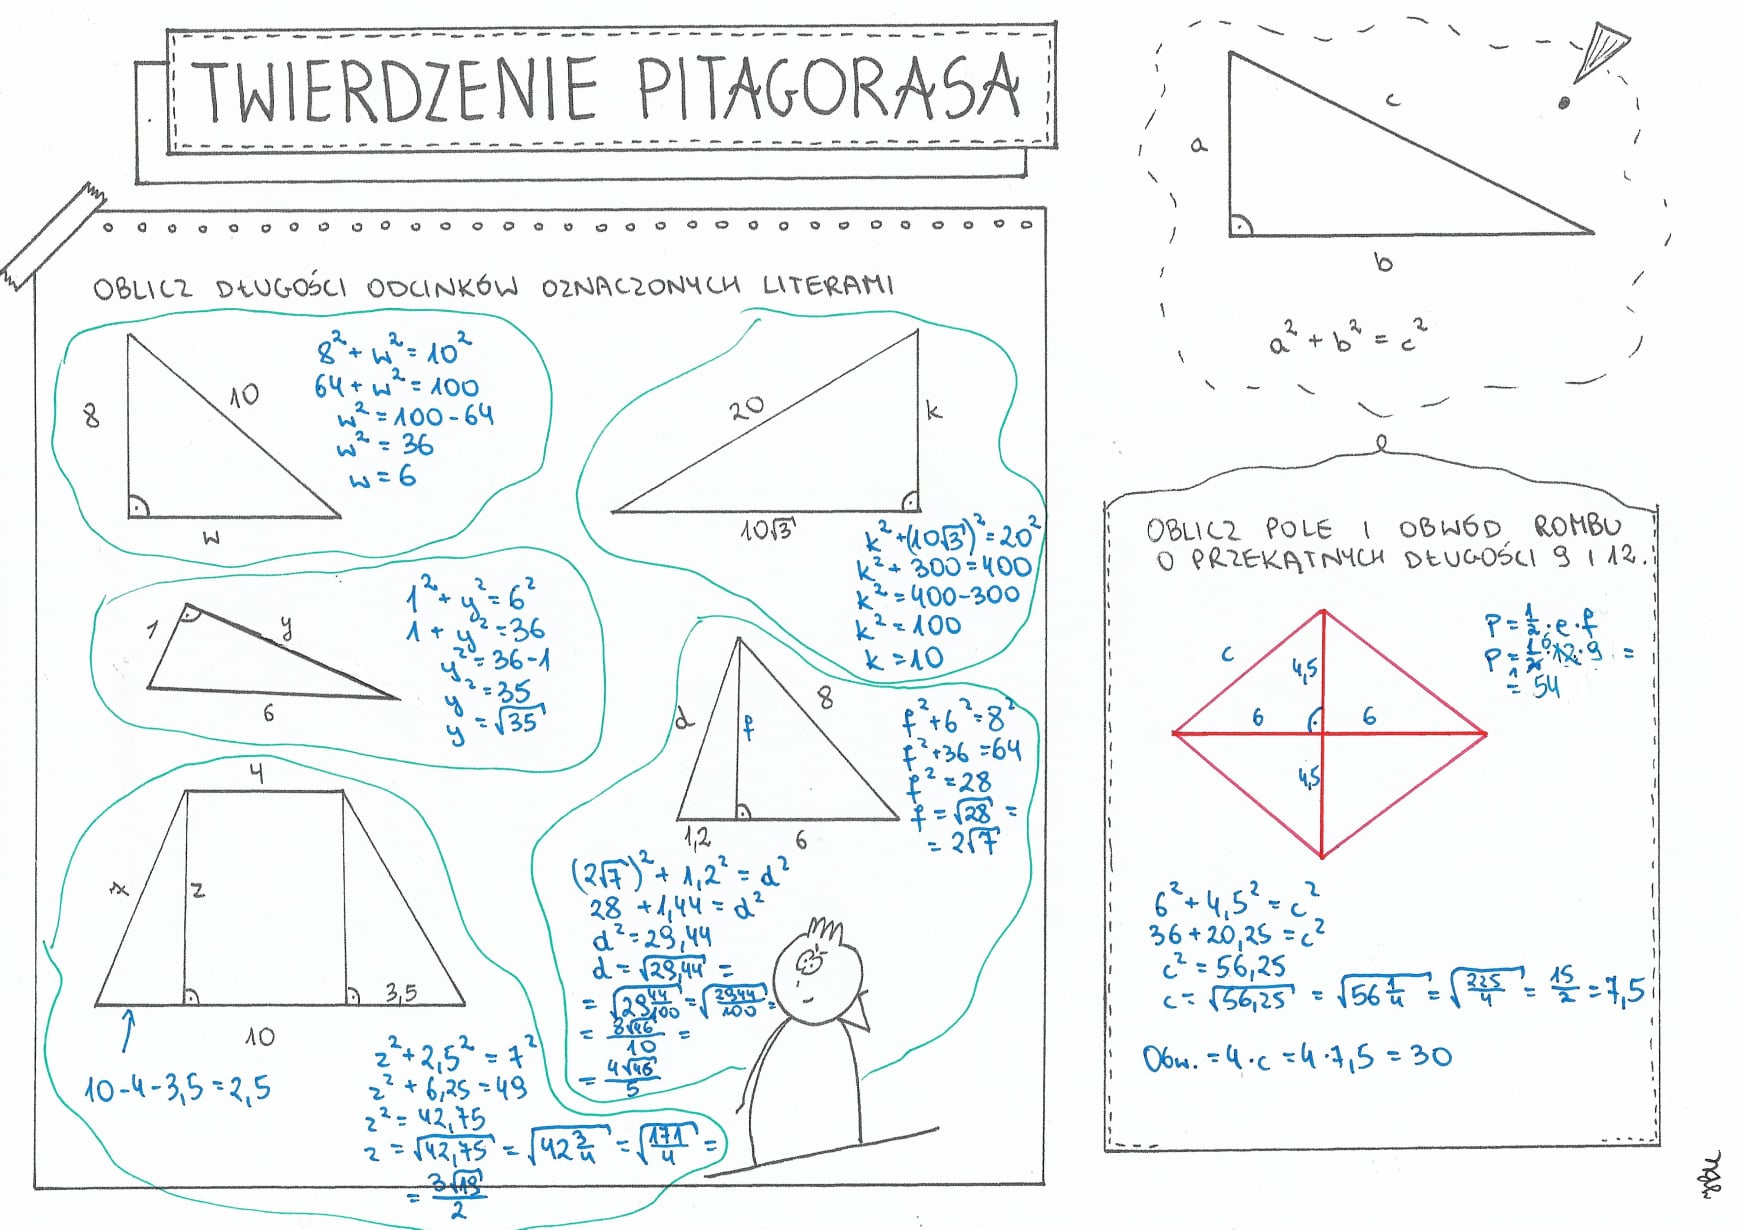 TWIERDZENIE PITAGORASA
OBLICZ DŁUGOŚCI ODCINKÓW OZNACZONYCH LITERAMI
8
10
w
8² + w² = 10²
64 + w² = 100
w² = 100 - 64
w² = 36
w = 6
20
k
10√3
k² + (10√3)² = 20²
k² + 300 = 400
k² = 400 - 300
k² = 100
k = 10
1
y
6
1² + y² = 6²
1 + y² = 36
y² = 36 - 1
y² = 35
y = √35
d
f
8
1,2
6
f² + 6² = 8²
f² + 36 = 64
f² = 28
f = √28 =
= 2√7
(2√7)² + 1,2² = d²
28 + 1,44 = d²
d² = 29,44
d = √29,44 =
= √29 44/100 = √2944/100 =
= 8√46/10 =
= 4√46/5
4
x
z
3,5
10
10 - 4 - 3,5 = 2,5
z² + 2,5² = 7²
z² + 6,25 = 49
z² = 42,75
z = √42,75 = √42 3/4 = √171/4 =
= 3√19/2
a
c
b
a² + b² = c²
OBLICZ POLE I OBWÓD ROMBU
O PRZEKĄTNYCH DŁUGOŚCI 9 I 12.
c
4,5
6
6
4,5
P = 1/2 · e · f
P = 1/2 · 12 · 9 =
= 54
6² + 4,5² = c²
36 + 20,25 = c²
c² = 56,25
c = √56,25 = √56 1/4 = √225/4 = 15/2 = 7,5
Obw. = 4 · c = 4 · 7,5 = 30